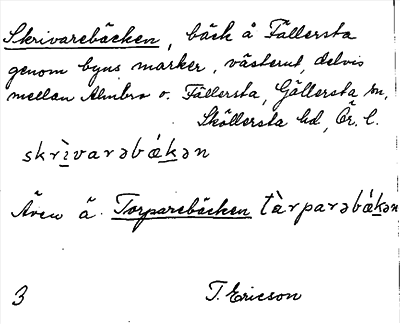 Skrivarebäcken, bäck å Fällersta
genom byns marker, västerut, delvis
mellan Almbro o. Fällersta, Gällersta sn,
Sköllersta hd, Ör. l.
skrìvarəbǽkən
Även å. Torparebäcken tàrparəbǽkən
3 T. Ericson